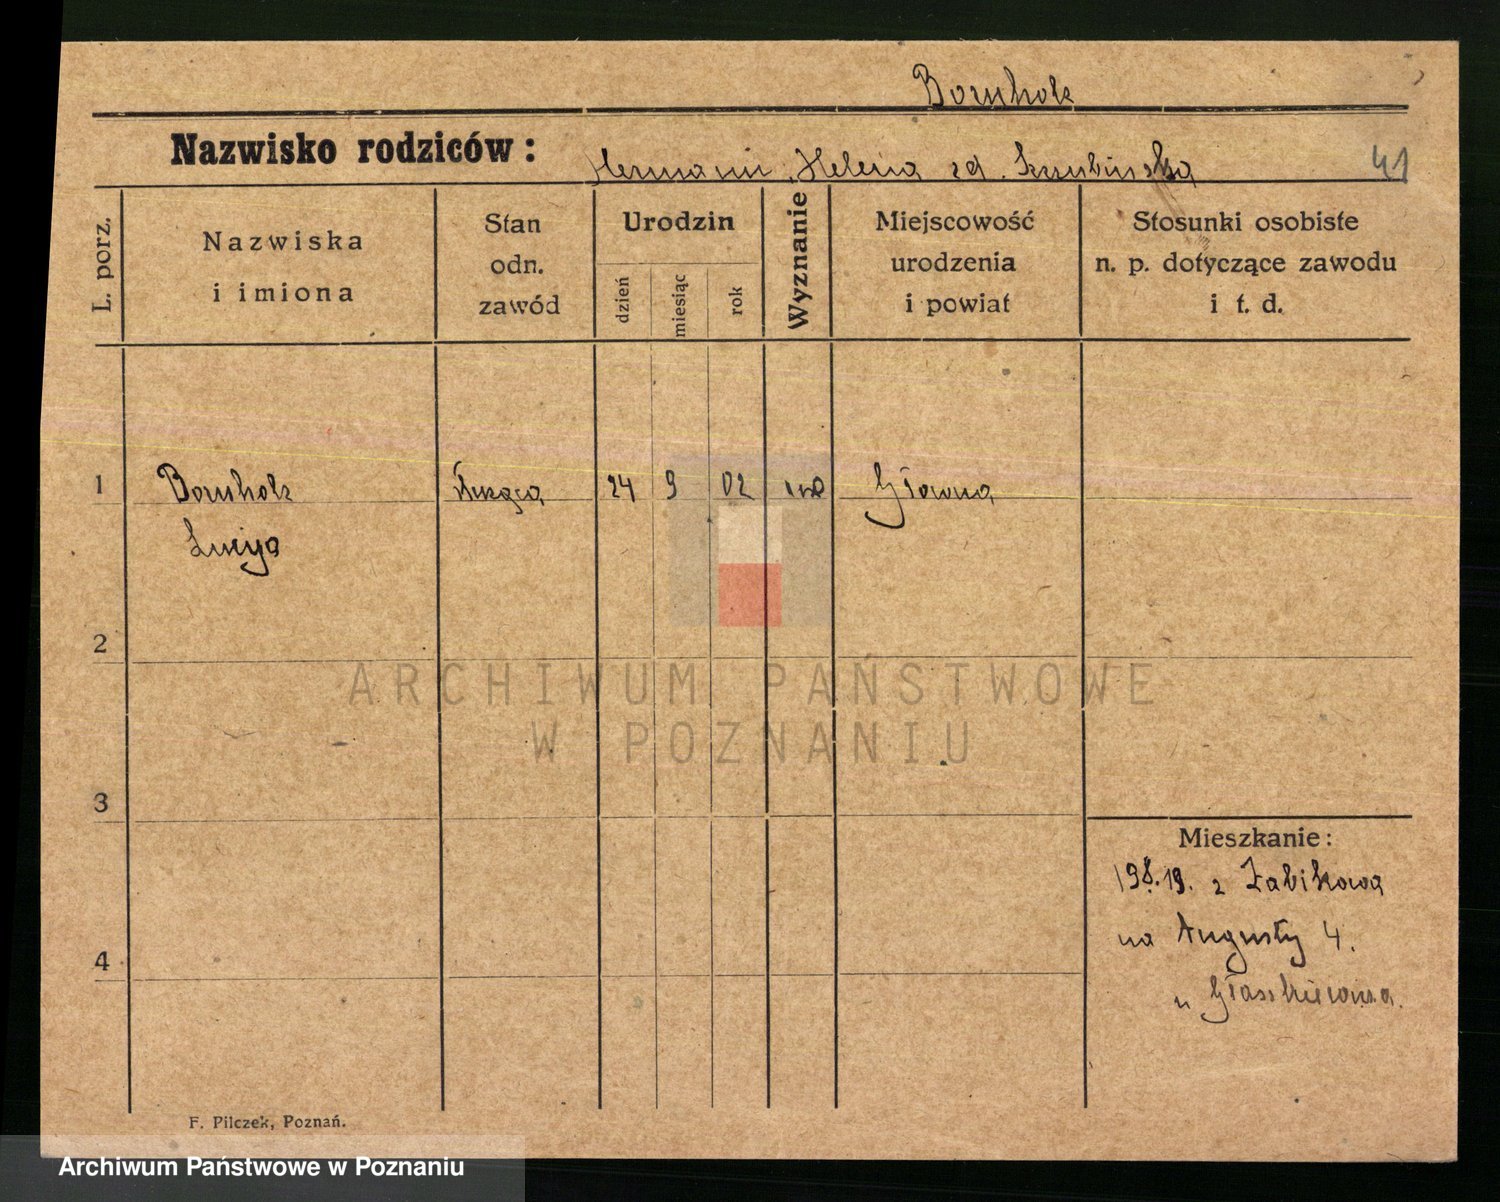 Bornholz
Nazwisko rodziców: Hermann, Helena zd. Szrubińska
41
L. porz.
Nazwiska
i imiona
Stan
odn.
zawód
Urodzin
dzień
miesiąc
rok
Wyznanie
Miejscowość
urodzenia
i powiat
Stosunki osobiste
n. p. dotyczące zawodu
i t. d.
1 Bornholz Służąca 24 9 02 Główna
Lucyja
2
3
4
Mieszkanie:
19.8.19. z Żabikowa
na Augusty 4.
u Głaskiewicza.
F. Pilczek, Poznań.
ARCHIWUM PAŃSTWOWE
W POZNANIU
Archiwum Państwowe w Poznaniu